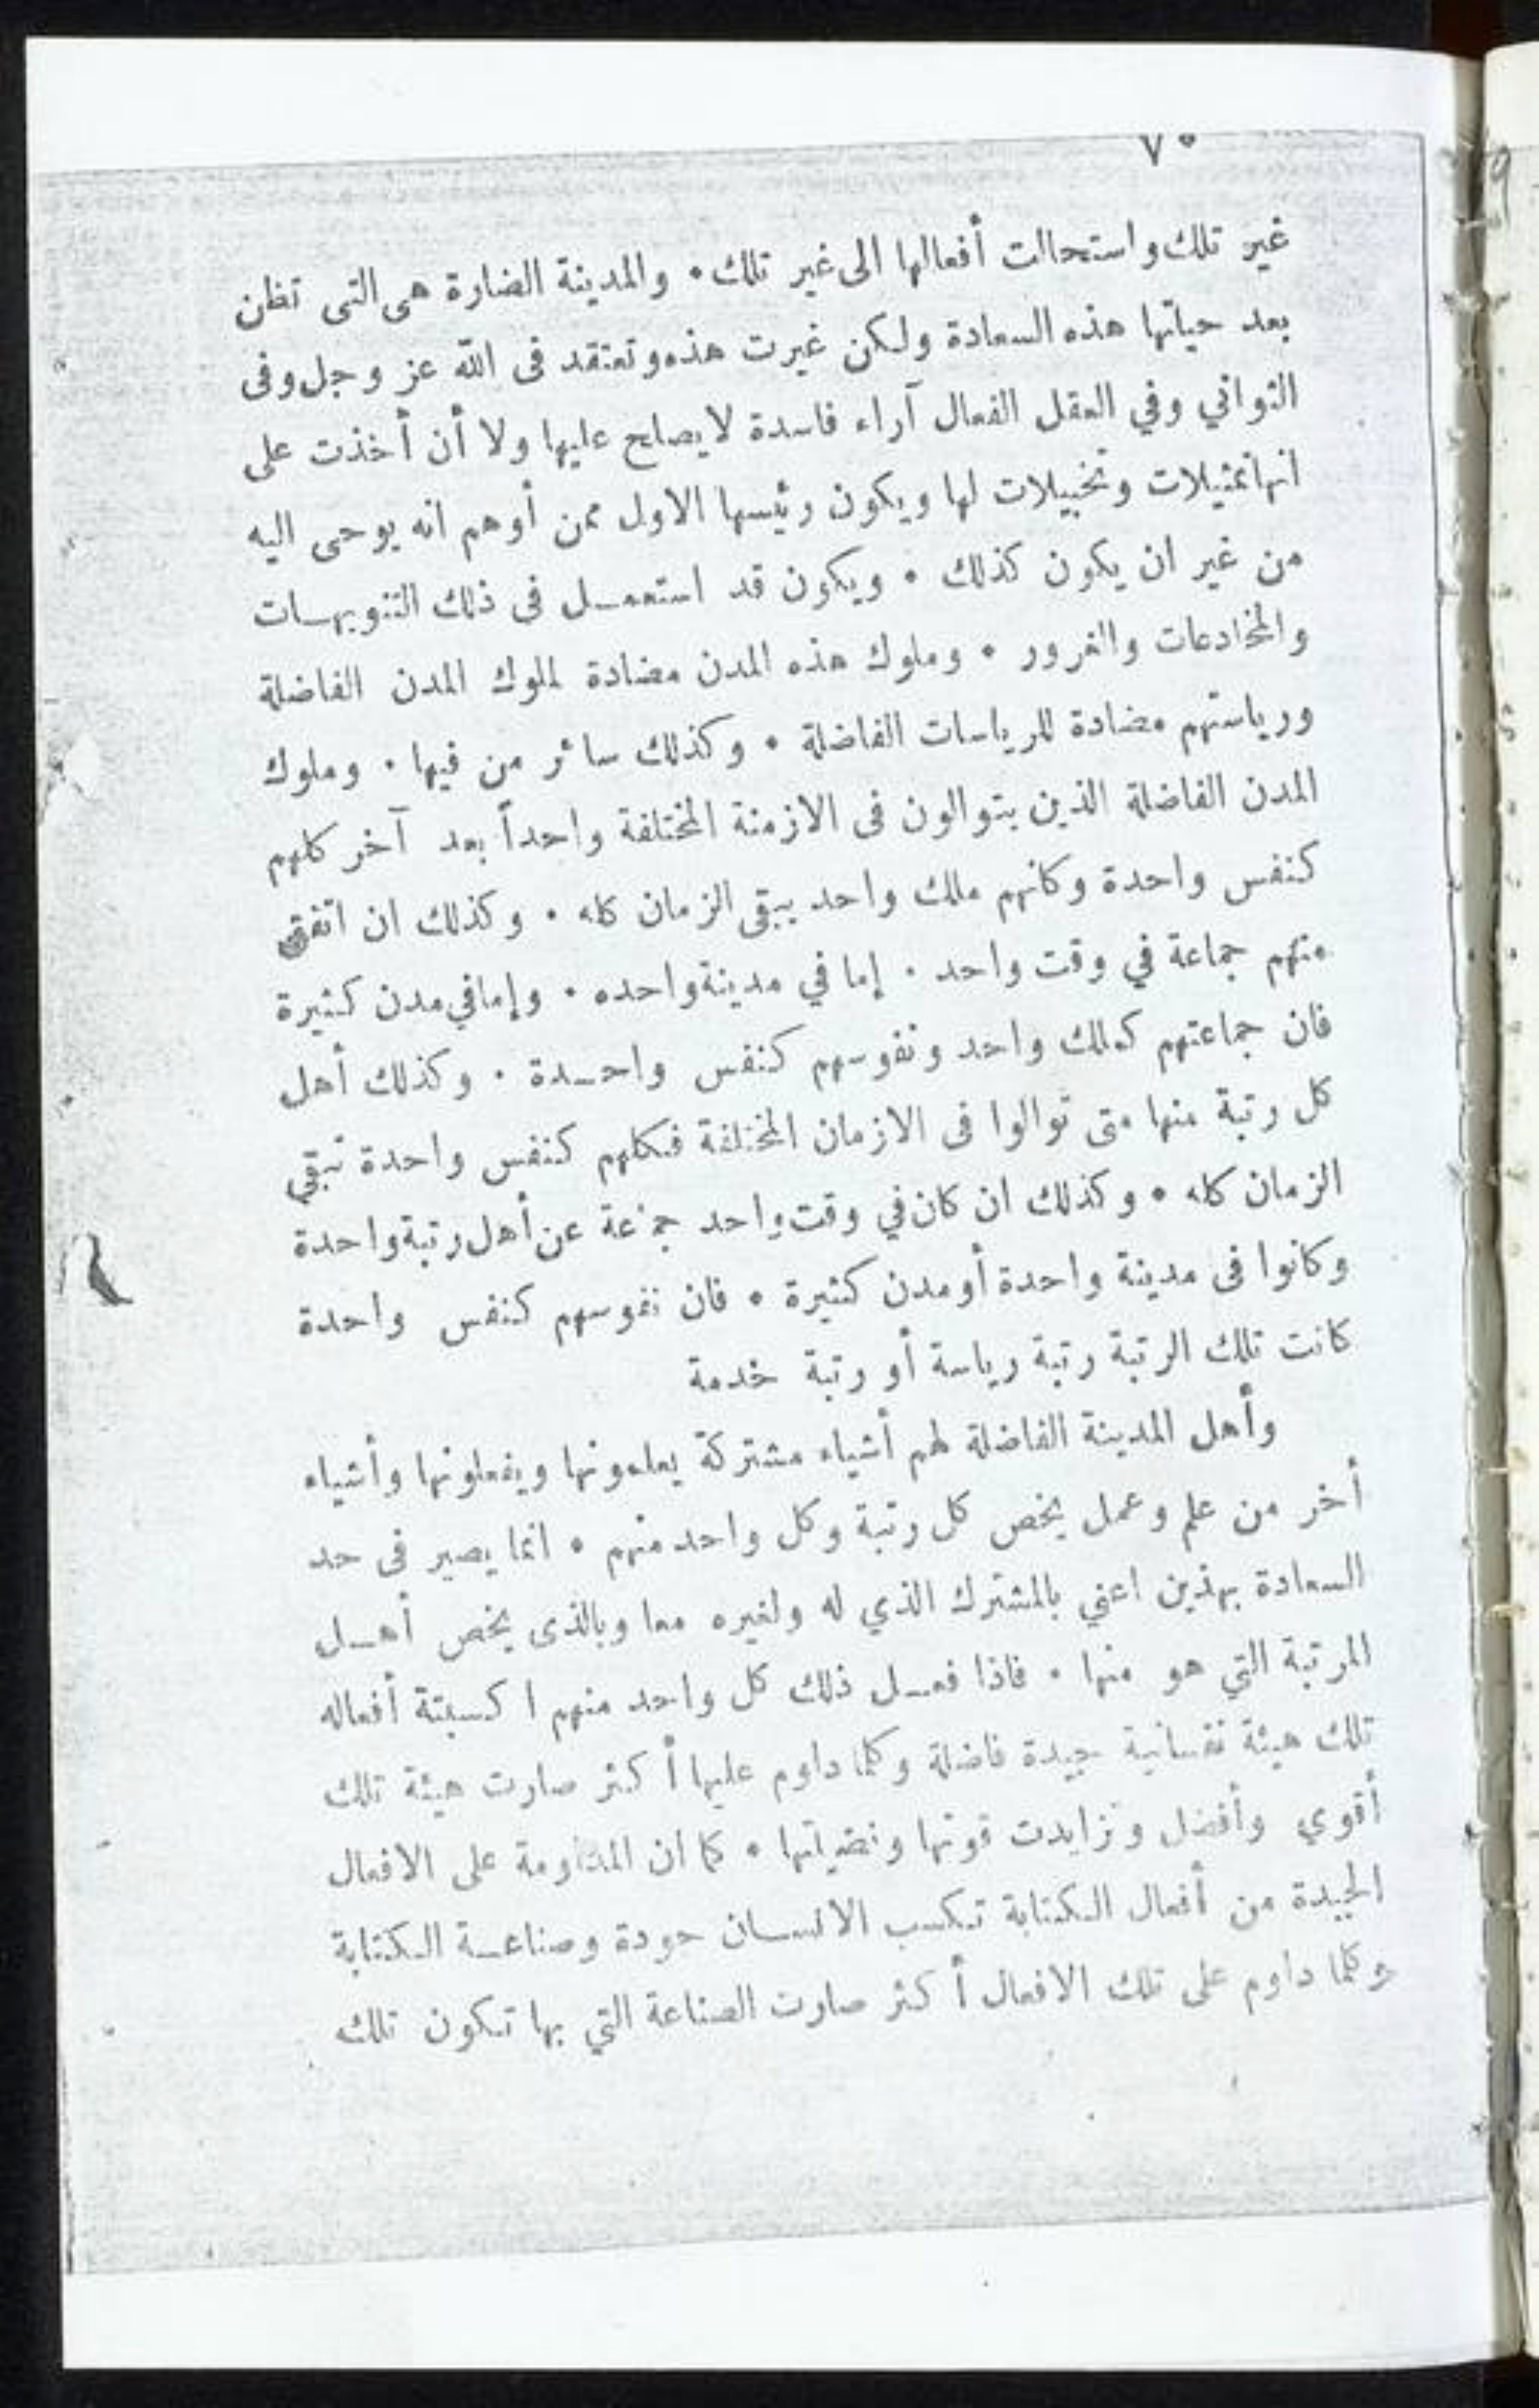 ٧٠
غير تلك واستحالت أفعالها الى غير تلك • والمدينة الضارة هى التى تظن
بعد حياتها هذه السعادة ولكن غيرت هذه وتعتقد فى الله عز وجل وفى
الثواني وفي العقل الفعال آراء فاسدة لا يصلح عليها ولا أن أخذت على
انها تمثيلات وتخييلات لها ويكون رئيسها الاول ممن أوهم انه يوحى اليه
من غير ان يكون كذلك • ويكون قد استعمل فى ذلك التنويهات
والمخادعات والغرور • وملوك هذه المدن مضادة لملوك المدن الفاضلة
ورياستهم مضادة للرياسات الفاضلة • وكذلك سائر من فيها • وملوك
المدن الفاضلة الذين يتوالون فى الازمنة المختلفة واحداً بعد آخر كلهم
كنفس واحدة وكانهم ملك واحد يبقى الزمان كله • وكذلك ان اتفق
منهم جماعة في وقت واحد • إما في مدينة واحده • وإما في مدن كثيرة
فان جماعتهم كملك واحد ونفوسهم كنفس واحدة • وكذلك أهل
كل رتبة منها متى توالوا فى الازمان المختلفة فكلهم كنفس واحدة تبقى
الزمان كله • وكذلك ان كان في وقت واحد جماعة عن أهل رتبة واحدة
وكانوا فى مدينة واحدة أو مدن كثيرة • فان نفوسهم كنفس واحدة
كانت تلك الرتبة رتبة رياسة أو رتبة خدمة
وأهل المدينة الفاضلة لهم أشياء مشتركة يعلمونها ويفعلونها وأشياء
أخر من علم وعمل يخص كل رتبة وكل واحد منهم • انما يصير فى حد
السعادة بهذين اعني بالمشترك الذي له ولغيره معا وبالذى يخص أهل
المرتبة التي هو منها • فاذا فعل ذلك كل واحد منهم اكسبتة أفعاله
تلك هيئة نفسانية جيدة فاضلة وكلما داوم عليها أكثر صارت هيئة تلك
أقوي وأفضل وتزايدت قوتها وفضيلتها • كما ان المداومة على الافعال
الجيدة من أفعال الكتابة تكسب الانسان جودة وصناعة الكتابة
وكلما داوم على تلك الافعال أكثر صارت الصناعة التي بها تكون تلك